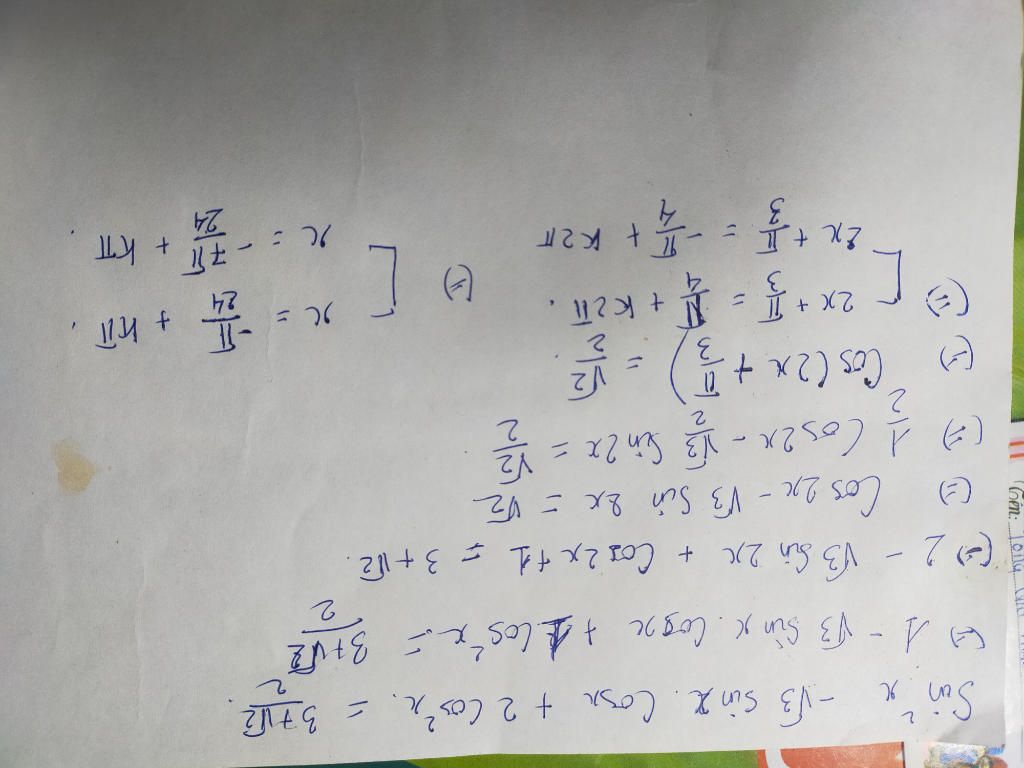 Sin²x - √3 sinx. Cosx + 2 Cos²x. = (3+√2)/2.
(=) 1 - √3 Sinx. Cosx + 1 Cos²x. = (3+√2)/2
(=) 2 - √3 Sin 2x + Cos2x + 1 = 3 + √2.
(=) Cos 2x - √3 Sin 2x = √2
(=) 1/2 Cos2x - √3/2 Sin 2x = √2/2.
(=) Cos(2x + π/3) = √2/2.
(=) [ 2x + π/3 = π/4 + K2π.
2x + π/3 = -π/4 + K2π
(=) [ x = -π/24 + Kπ.
x = -7π/24 + Kπ.